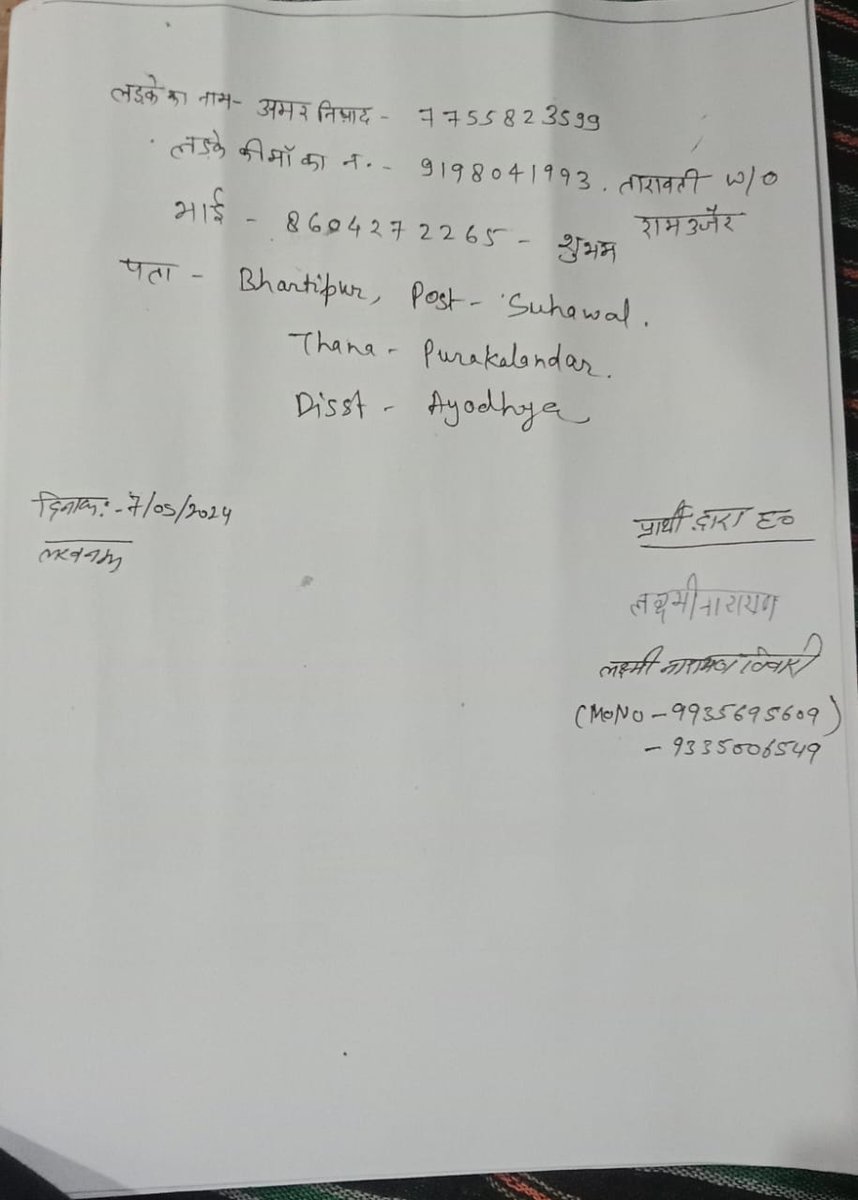 लड़के का नाम - अमर निषाद - 7755823599
लड़के की माँ का न. - 9198041993. तारावती w/o
रामउजैर
भाई - 8604272265 - शुभम
पता - Bhartipur, Post - Suhawal.
Thana - Purakalandar.
Disst - Ayodhya
दिनांक: - 7/05/2024
लखनऊ
प्रार्थी द्वारा ह०
लक्ष्मीनारायण
लक्ष्मी नारायण तिवारी
(MoNo - 9935695609)
- 9335006549